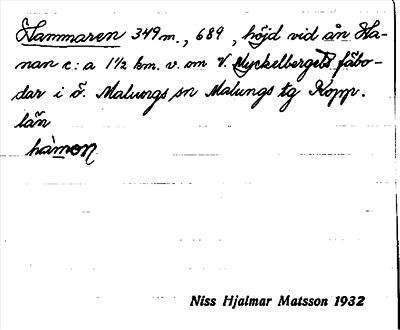 Hammaren 349 m., 689, höjd vid ån Ha-
nan c:a 1½ km. v. om V. Myckelbergets fäbo-
dar i ö. Malungs sn Malungs tg Kopp.
län
hàmon
Niss Hjalmar Matsson 1932